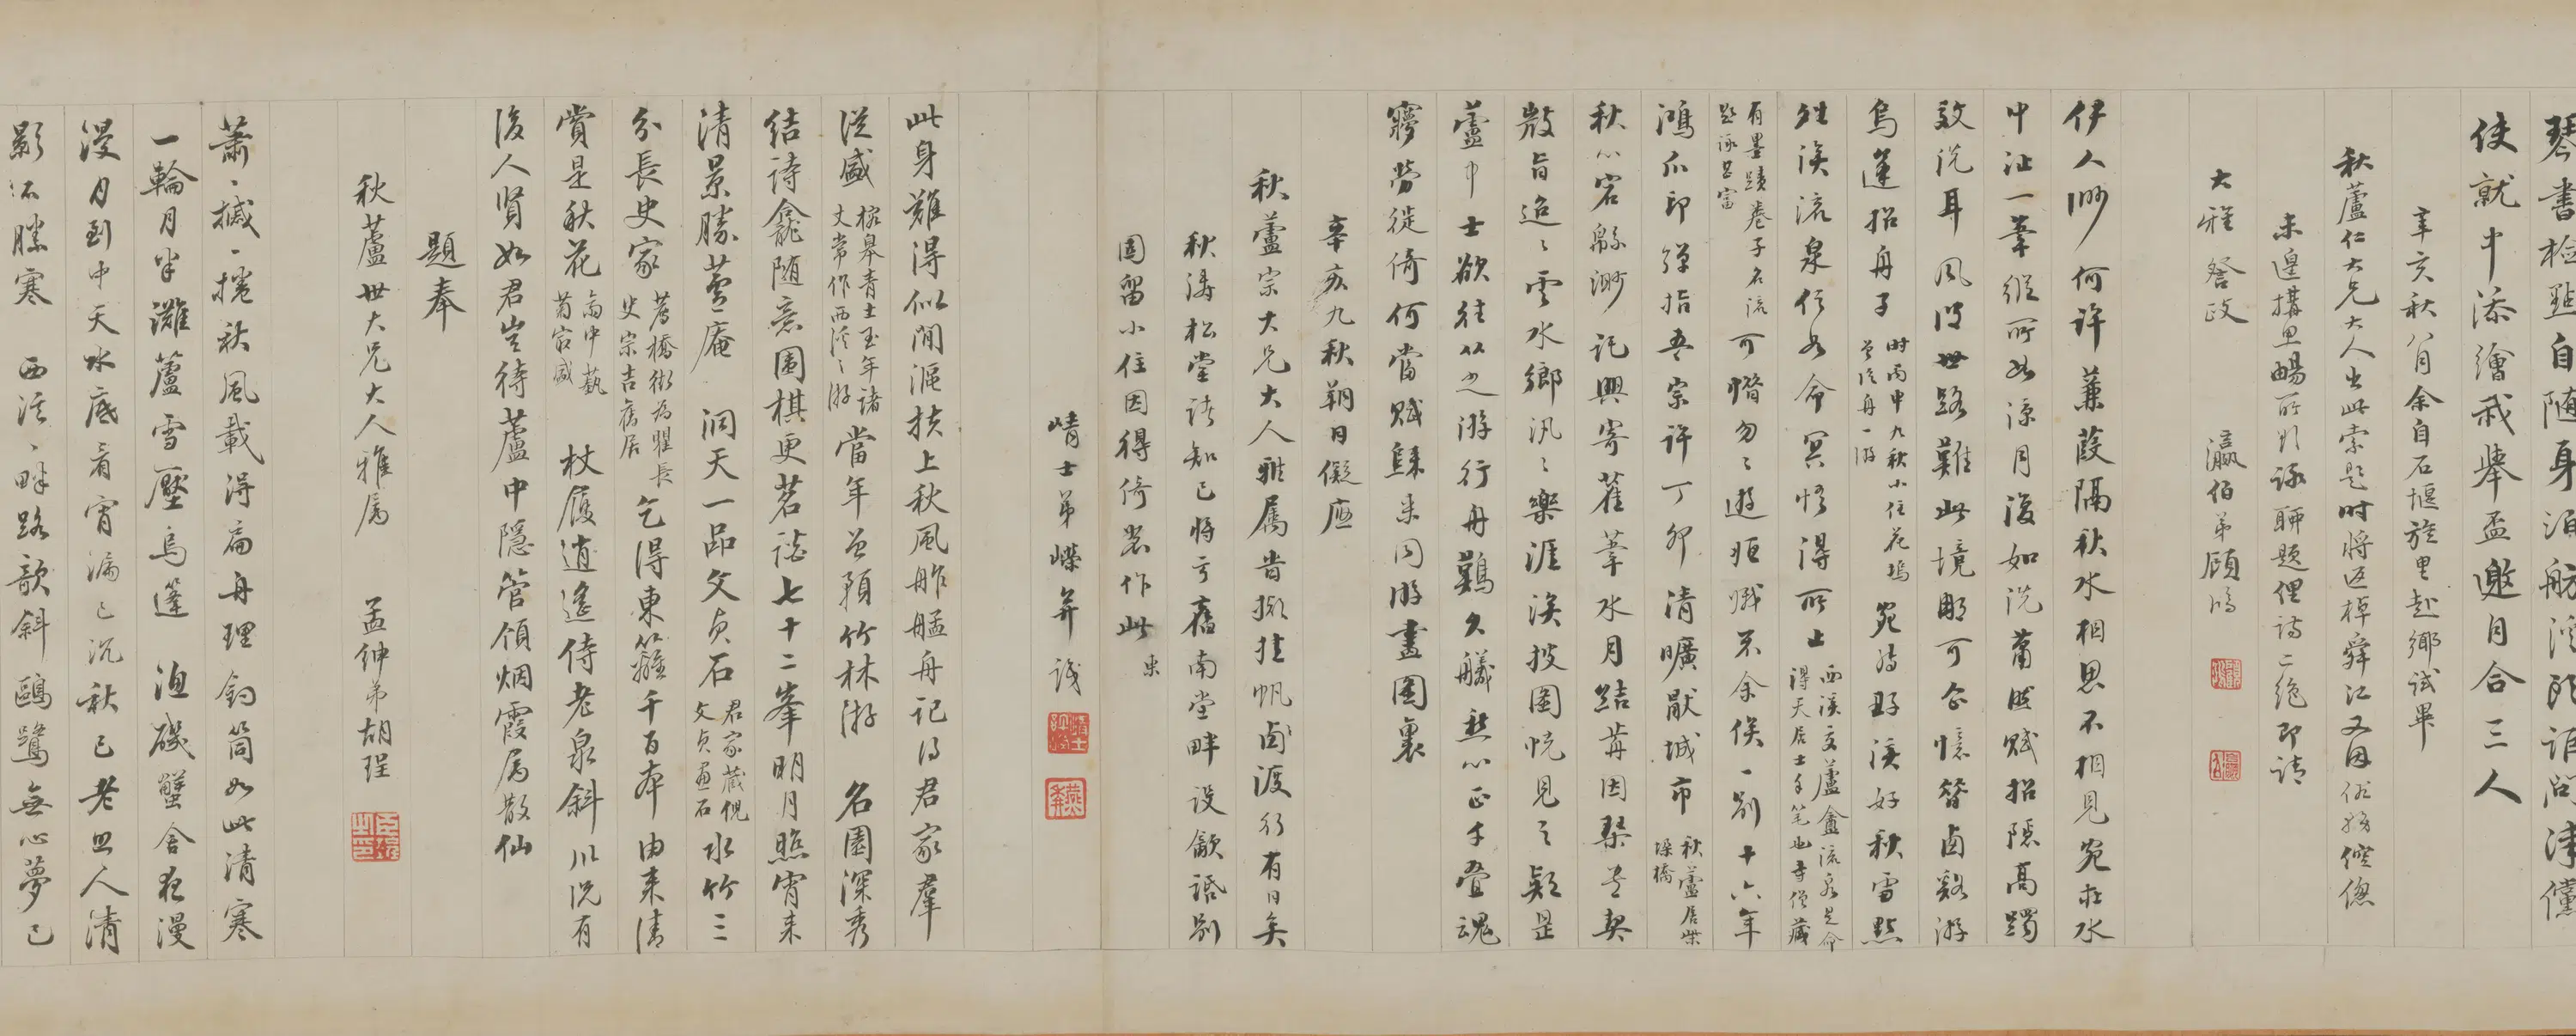 琴書檢點自隨身泊舫溪所誰問津儻
使就中添繪我舉盃邀月合三人
辛亥秋八月余自石堰旋里赴鄉試畢
秋蘆仁大兄大人出此索題時將返棹舜江又因俗務倥傯
未遑搆思暢所欲詠聊題俚詩二絕即請
大雅誊政 瀛伯弟顧鴻
伊人渺何許蒹葭隔秋水相思不相見宛在水
中沚一葦縱所如涼月澹如洗蕭然賦招隱高躅
致洗耳風陽世路難此境那可企憶昔鹵谿游
烏蓬招舟子 時丙申九秋小住花塢曾泛舟一游 宛尋野溪好秋雪點
殊溪流泉伫盆龠冥悟得所止 西溪交蘆盦流泉是命得天居士手筆也寺僧藏
有墨蹟卷子名流題詠呂富 可惜勿勿遊恒嘅不余俟一別十六年
鴻爪印彈指吾宗許丁卯清曠厭城市 秋蘆居柴垛橋
秋心宕緜渺託興寄萑葦水月結苒因琴書契
微旨迢迢雲水鄉汎汎樂涯涘披圖恍見之疑是
蘆中士欲往从之游行舟鷄久艤愁心正千疊魂
夢勞徙倚何當賦歸來同游畫圖裏
辛亥九秋朔日儗應
秋蘆宗大兄大人雅屬昔擬挂帆鹵渡行有日矣
秋濤松堂諸知己將于舊南堂畔設飲話別
固留小住因得倚裝作此 弗
崝士弟嶸并識
此身難得似閒漚扶上秋風舴艋舟記得君家羣
從盛 榕皋青士玉年諸丈常作西溪之游 當年曾預竹林游 名園深秀
結詩龕隨意圍棋更茗談七十二峯明月照宵來
清景勝蕓庵 洞天一品文貞石 君家藏倪文貞畫石 水竹三
分長史家 薦橋街為瞿長史宗吉舊居 乞得東籬千百本由來清
賞是秋花 齋中藝菊宿盛 杖履逍遙侍老泉斜川況有
後人賢如君豈待蘆中隱管領烟霞屬散仙
題奉
秋蘆世大兄大人雅屬 孟紳弟胡珵
蕭蕭摵摵捲秋風載得扁舟理釣筒如此清寒
一輪月半灘蘆雪壓烏篷 漁磯蟹舍夜漫
漫月到中天水底看宵漏已沉秋已老照人清
影不勝寒 西溪溪畔路欹斜鷗鷺無心夢已